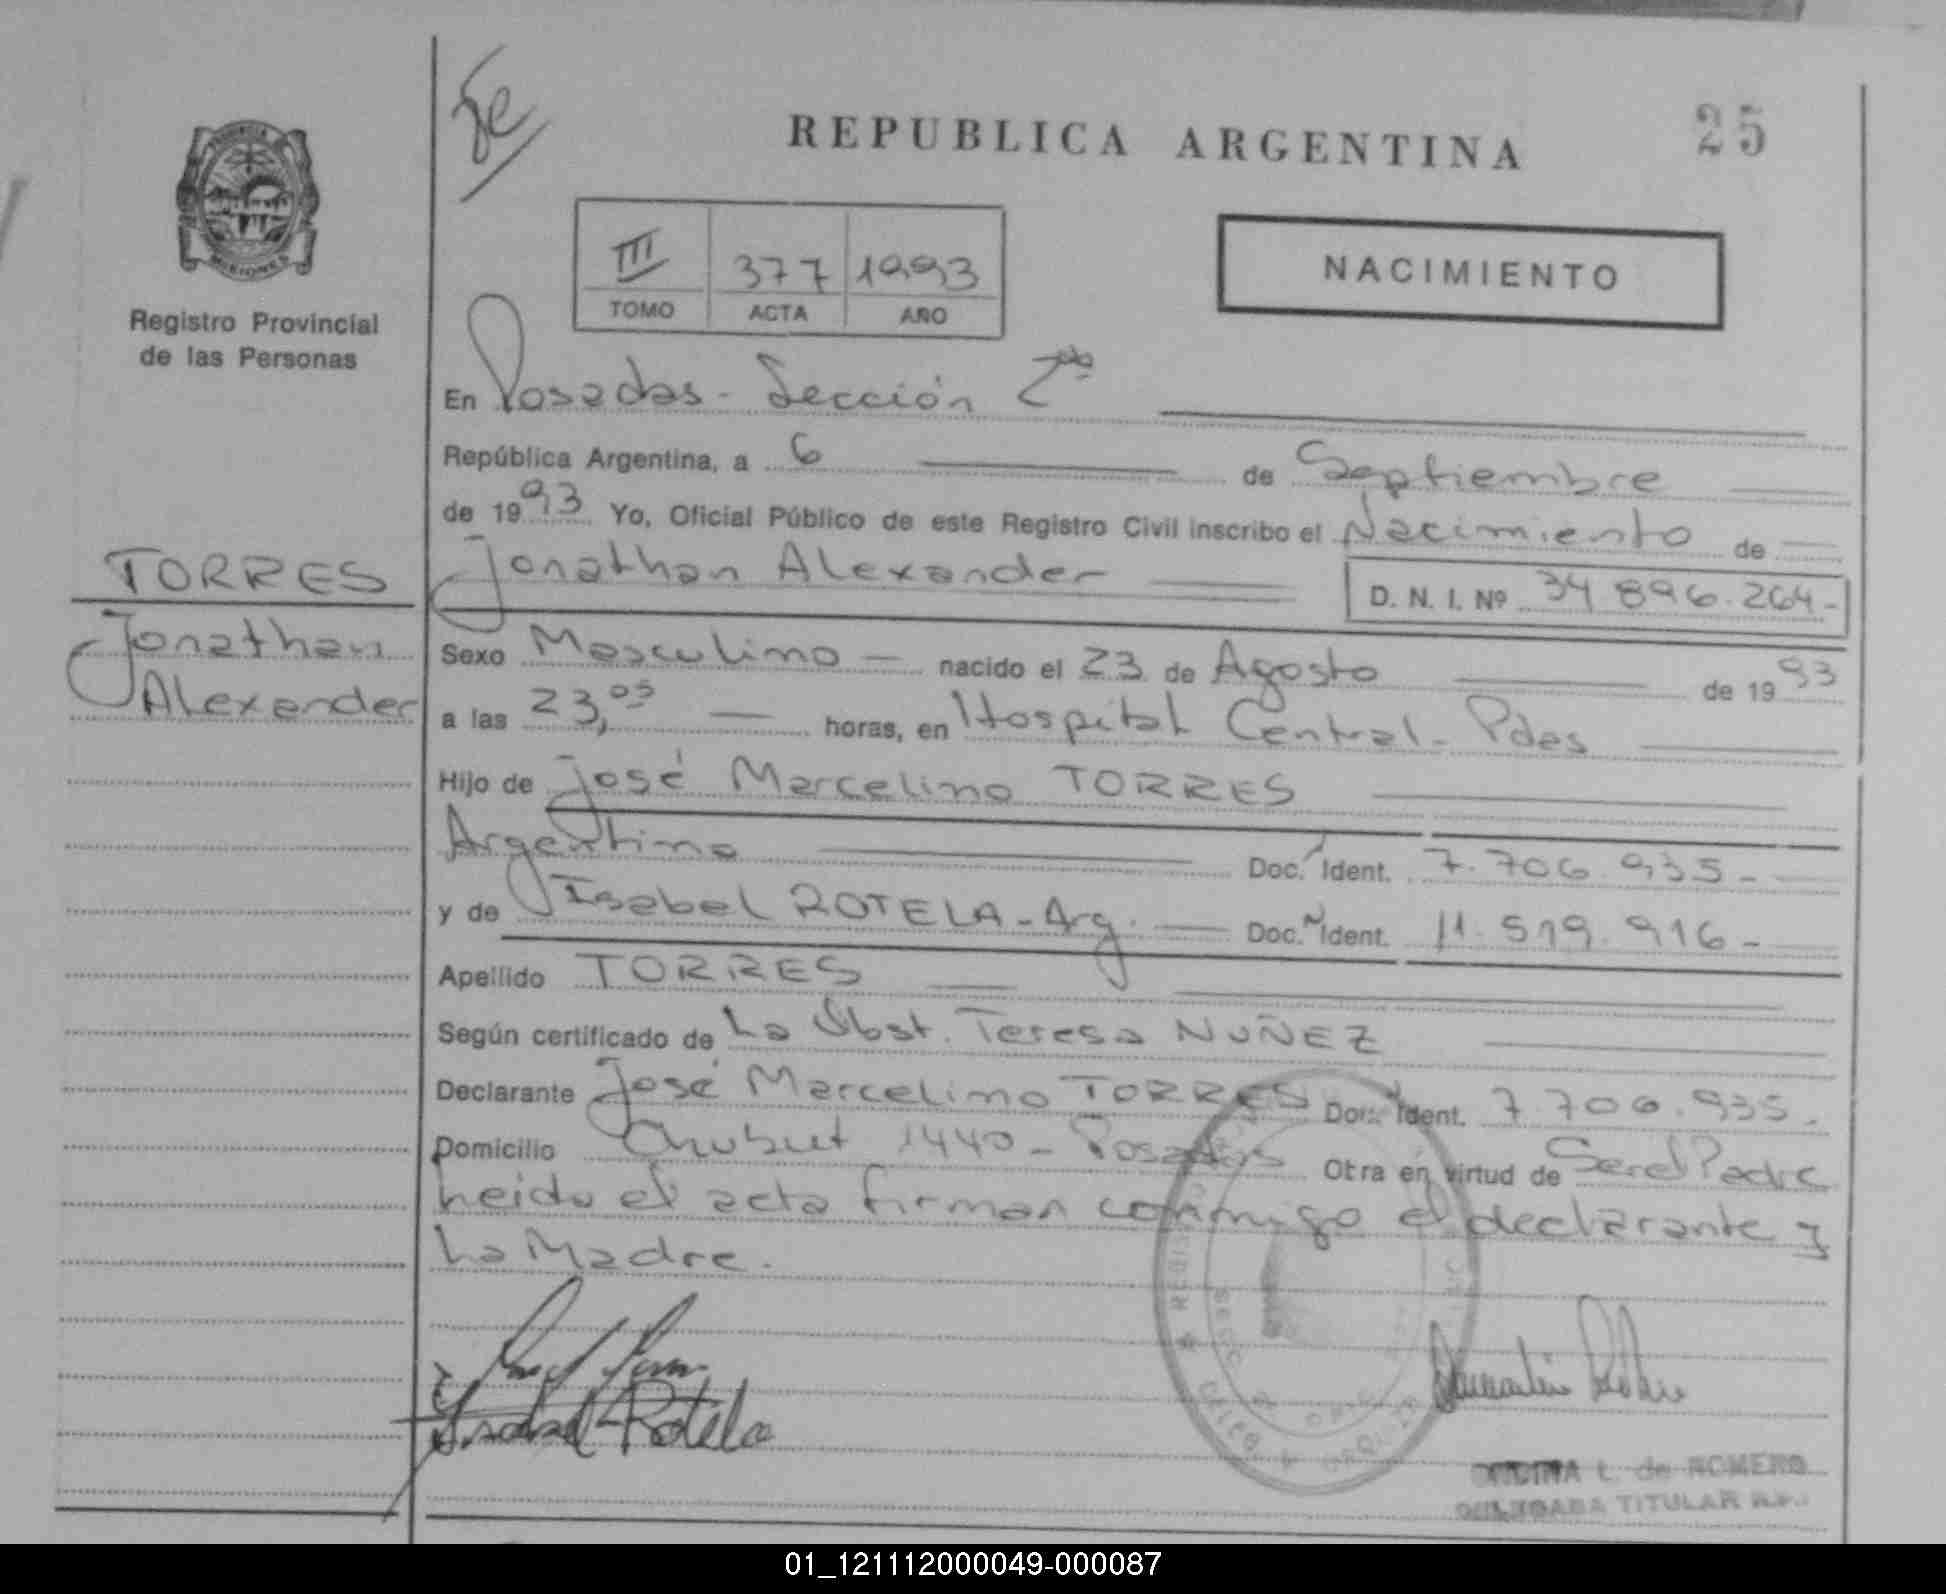 25
REPUBLICA ARGENTINA
PROVINCIA
MISIONES
Registro Provincial
de las Personas
III 377 1993
TOMO ACTA AÑO
NACIMIENTO
En Posadas - Sección 2da
República Argentina, a 6 de Septiembre
de 1993 Yo, Oficial Público de este Registro Civil inscribo el Nacimiento de
Jonathan Alexander D. N. I. Nº 34 896.264-
TORRES
Jonathan
Alexander
Sexo Masculino - nacido el 23 de Agosto de 1993
a las 23,05 horas, en Hospital Central - Pdas
Hijo de José Marcelino TORRES
Argentino Doc. Ident. 7.706.935-
y de Isabel ROTELA - Arg. Doc. Ident. 11.519.916-
Apellido TORRES
Según certificado de La Obst. Teresa NUÑEZ
Declarante José Marcelino TORRES Doc. Ident. 7.706.935.
Domicilio Chubut 1440 - Posadas Otra en virtud de Ser el Padre
Leido el acta firman conmigo el declarante y
La Madre.
Isabel Rotela
L. de ROMERO
TITULAR
01_121112000049-000087